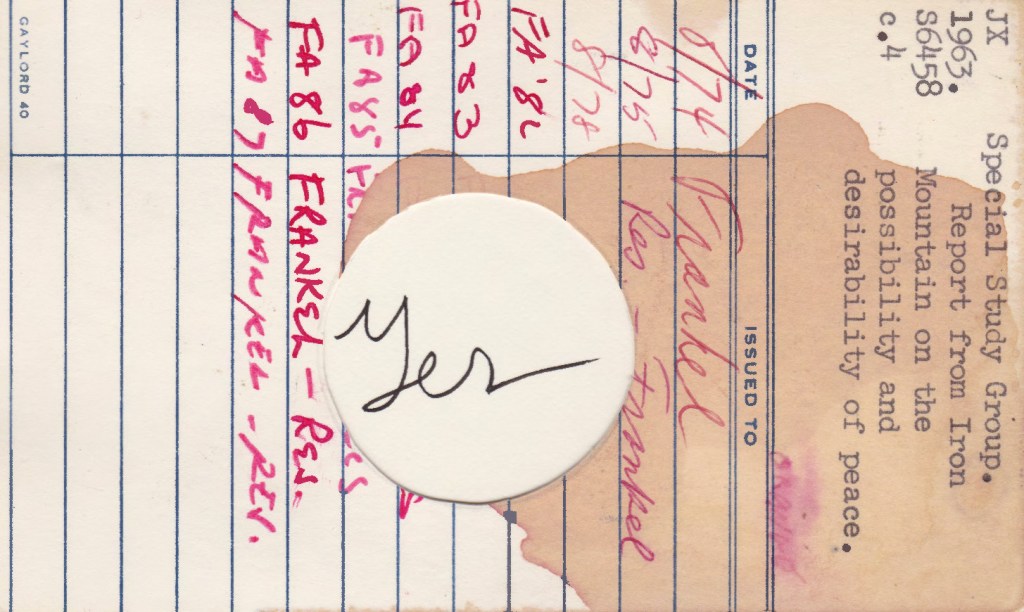 JX Special Study Group.
1963. Report from Iron
S6458 Mountain on the
c.4 possibility and
desirability of peace.
DATE ISSUED TO
8/74 Frankel
8/75 Res - Frankel
8/78
FA'82
FA 83
FA 84
FA 85
FA 86 FRANKEL - RES.
FA 87 FRANKEL -
Yes
GAYLORD 40